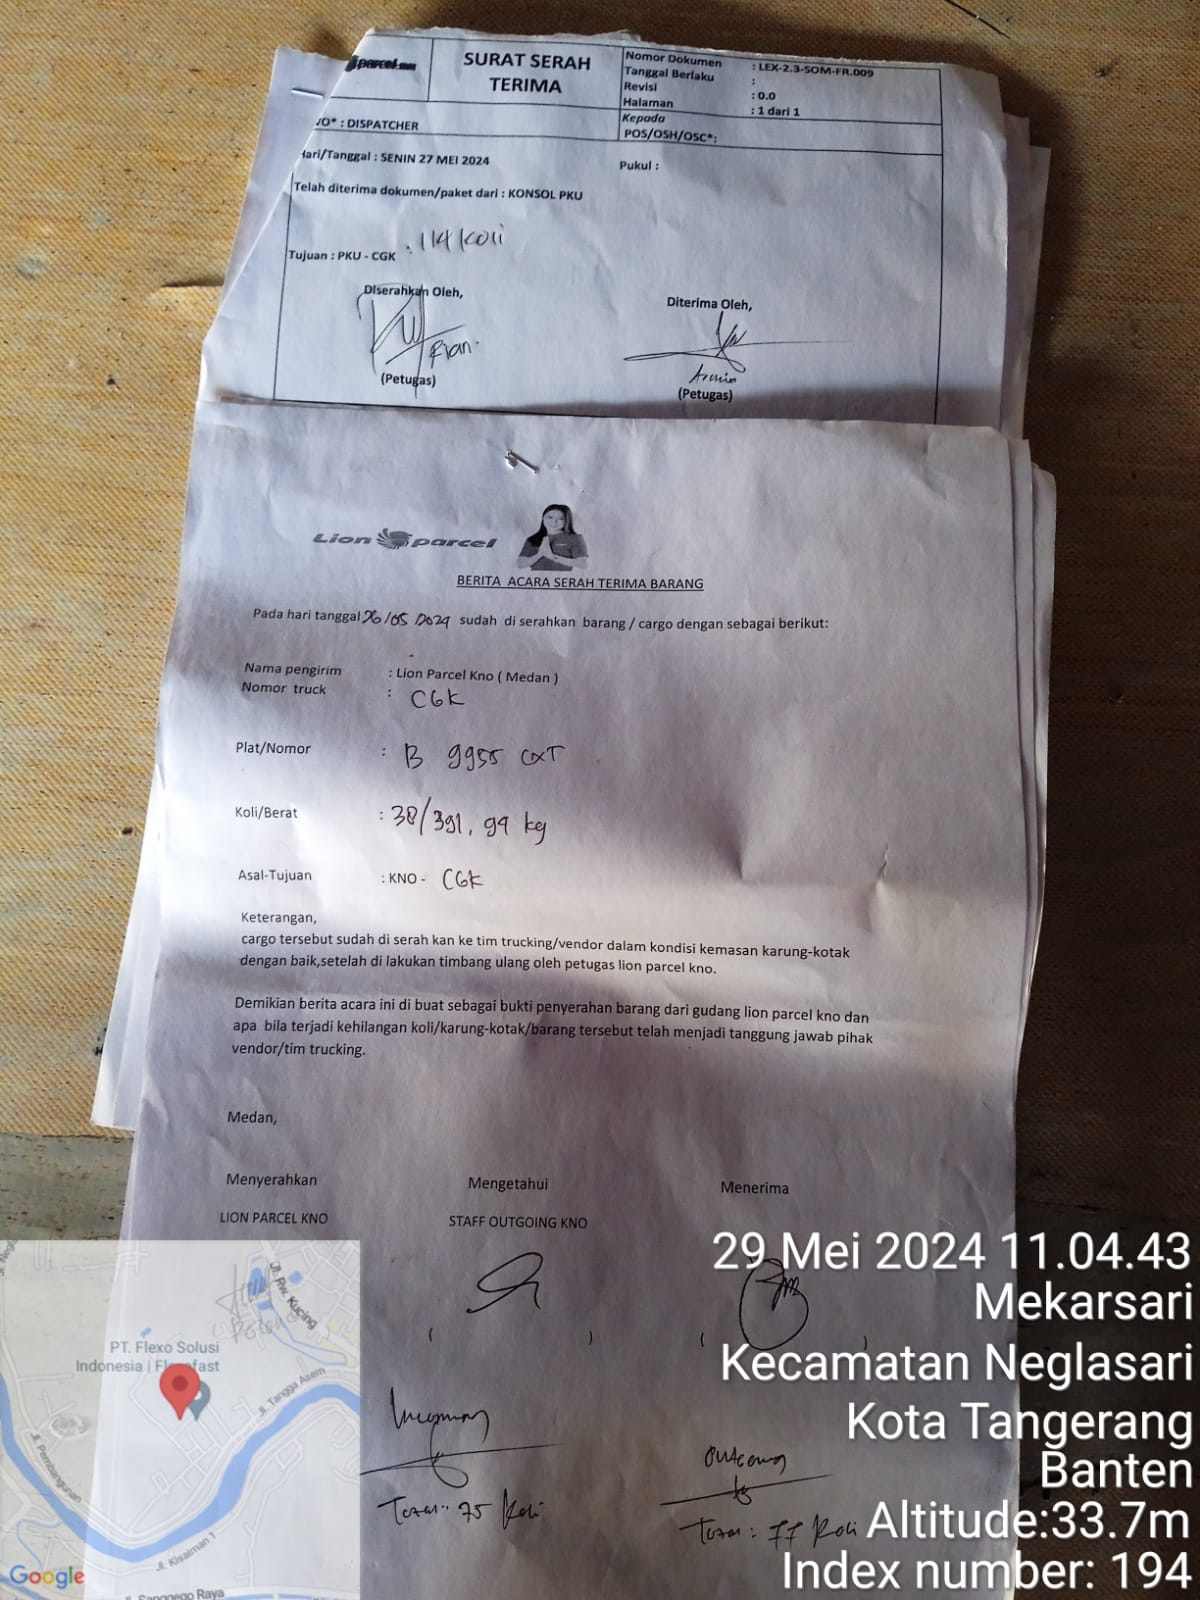 parcel.com
SURAT SERAH
TERIMA
Nomor Dokumen : LEX-2.3-SOM-FR.009
Tanggal Berlaku :
Revisi : 0.0
Halaman : 1 dari 1
VO* : DISPATCHER
Kepada
POS/OSH/OSC*:
Hari/Tanggal : SENIN 27 MEI 2024
Pukul :
Telah diterima dokumen/paket dari : KONSOL PKU
Tujuan : PKU - CGK : 114 Koli
Diserahkan Oleh,
Diterima Oleh,
Rian
(Petugas)
(Petugas)
Lion parcel
BERITA ACARA SERAH TERIMA BARANG
Pada hari tanggal 26/05/2024 sudah di serahkan barang / cargo dengan sebagai berikut:
Nama pengirim : Lion Parcel Kno ( Medan )
Nomor truck : CGK
Plat/Nomor : B 9955 CXT
Koli/Berat : 38/391,99 kg
Asal-Tujuan : KNO - CGK
Keterangan,
cargo tersebut sudah di serah kan ke tim trucking/vendor dalam kondisi kemasan karung-kotak
dengan baik,setelah di lakukan timbang ulang oleh petugas lion parcel kno.
Demikian berita acara ini di buat sebagai bukti penyerahan barang dari gudang lion parcel kno dan
apa bila terjadi kehilangan koli/karung-kotak/barang tersebut telah menjadi tanggung jawab pihak
vendor/tim trucking.
Medan,
Menyerahkan
Mengetahui
Menerima
LION PARCEL KNO
STAFF OUTGOING KNO
( )
( )
Incoming
Total : 75 Koli
Outgoing
Total : 77 Koli
Jl. Rw. Kucing
PT. Flexo Solusi
Indonesia | Flexofast
Jl. Tangga Asem
Jl. Pembangunan
Jl. Kisaiman 1
Jl. Sanggego Raya
Google
29 Mei 2024 11.04.43
Mekarsari
Kecamatan Neglasari
Kota Tangerang
Banten
Altitude:33.7m
Index number: 194